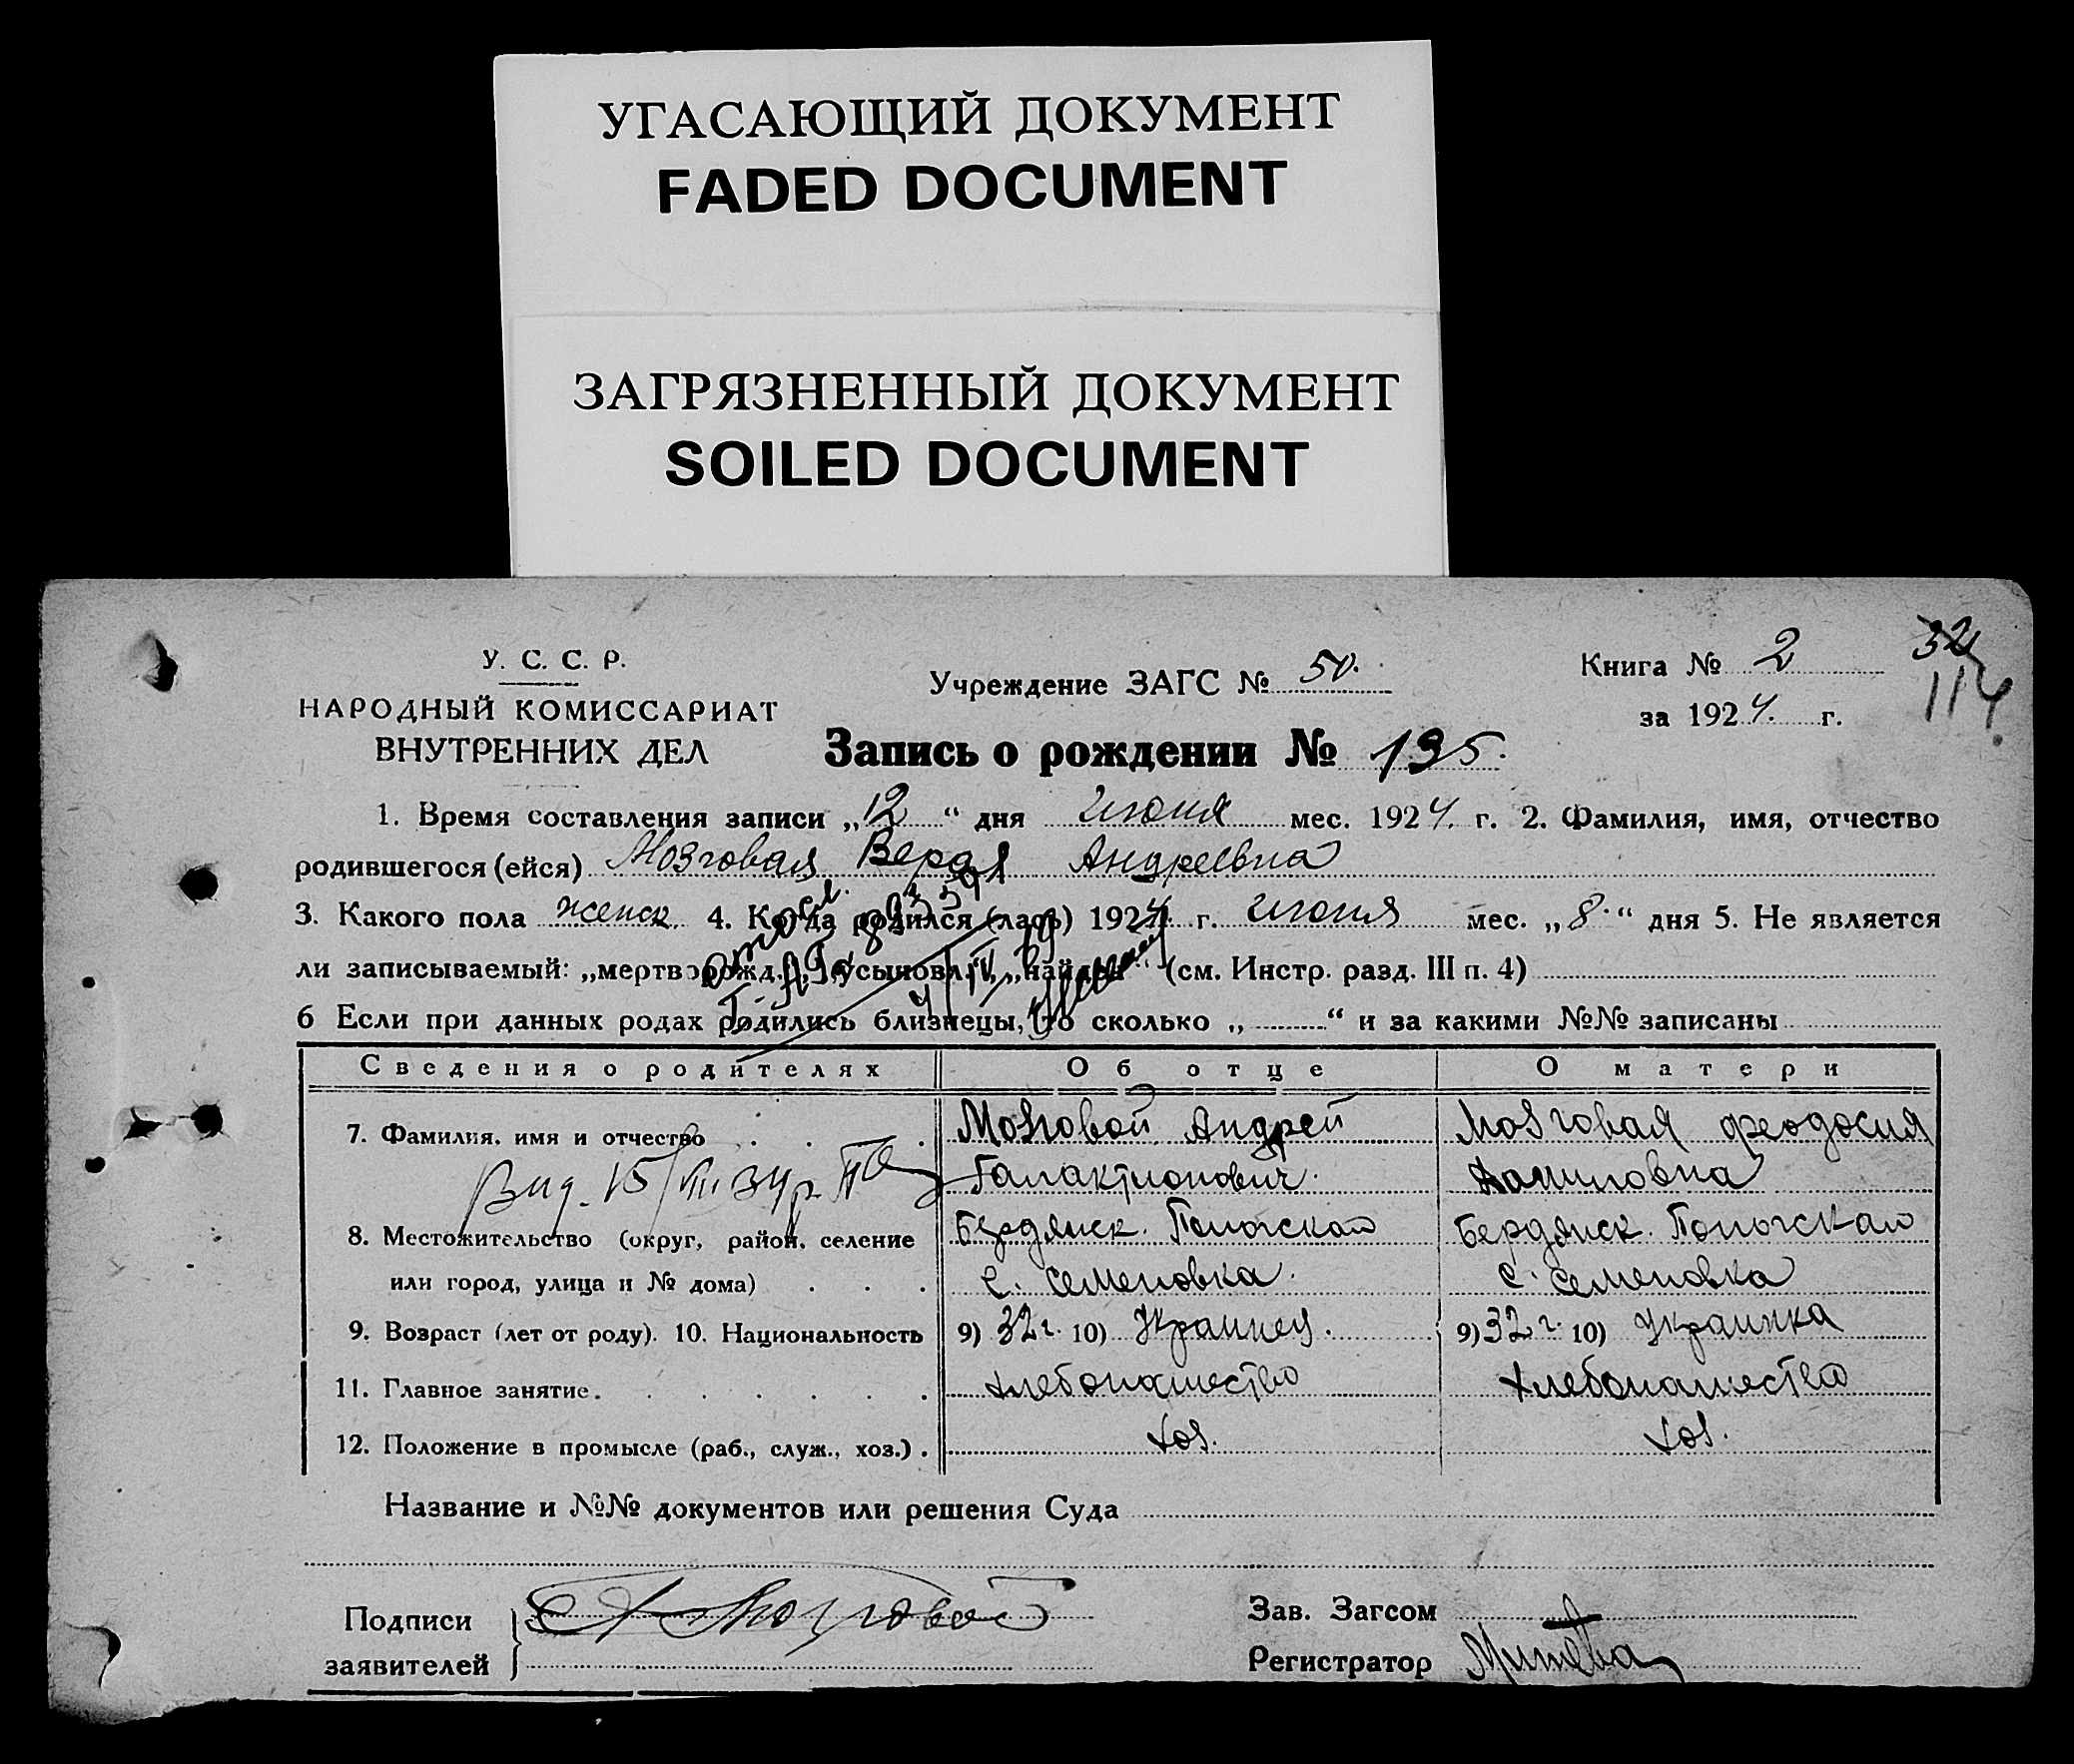 УГАСАЮЩИЙ ДОКУМЕНТ
FADED DOCUMENT
ЗАГРЯЗНЕННЫЙ ДОКУМЕНТ
SOILED DOCUMENT
У. С. С. Р.
НАРОДНЫЙ КОМИССАРИАТ
ВНУТРЕННИХ ДЕЛ
Учреждение ЗАГС № 50.
Книга № 2
32
114
за 1924. г.
Запись о рождении № 195.
1. Время составления записи „12“ дня июня мес. 1924. г. 2. Фамилия, имя, отчество
родившегося (ейся) Мозговая Вера Андреевна
3. Какого пола женск. 4. Когда родился (лась) 1924. г. июня мес. „8.“ дня 5. Не является
ли записываемый: „мертворожд.“, „усыновл.“, „найден“ (см. Инстр. разд. III п. 4)
6 Если при данных родах родились близнецы, то сколько „ “ и за какими №№ записаны
Сведения о родителях Об отце О матери
7. Фамилия, имя и отчество Мозговой Андрей Мозговая Феодосия
Вид. 15/ Галактионович. Даниловна
8. Местожительство (округ, район, селение Бердянск. Пологскаго Бердянск. Пологскаго
или город, улица и № дома) с. Семеновка. с. Семеновка
9. Возраст (лет от роду). 10. Национальность 9) 32 г. 10) Украинец. 9) 32 г. 10) Украинка
11. Главное занятие. хлебопашество хлебопашество
12. Положение в промысле (раб., служ., хоз.). хоз. хоз.
Название и №№ документов или решения Суда
Подписи заявителей А Мозговой
Зав. Загсом
Регистратор